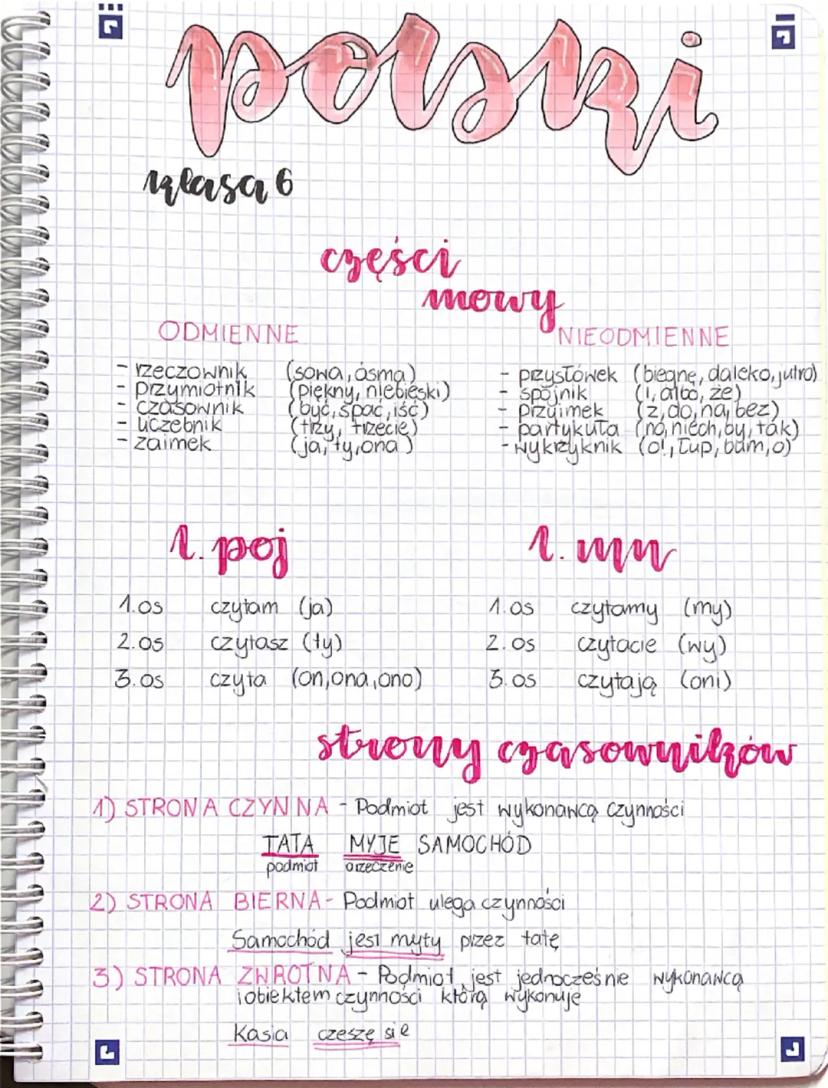 polski
klasa 6
części
mowy
ODMIENNE
- rzeczownik (sowa, osma)
- przymiotnik (piękny, niebieski)
- czasownik (być, spac, iść)
- liczebnik (trzy, trzecie)
- zaimek (ja, ty, ona)
NIEODMIENNE
- przysłówek (biegnę, daleko, jutro)
- spójnik (i, albo, że)
- przyimek (z, do, na, bez)
- partykuła (no, niech, by, tak)
- wykrzyknik (o!, łup, bam, o)
l. poj
1.os czytam (ja)
2.os czytasz (ty)
3.os czyta (on, ona, ono)
l. mn
1.os czytamy (my)
2.os czytacie (wy)
3.os czytają (oni)
strony czasowników
1) STRONA CZYNNA - Podmiot jest wykonawcą czynności
TATA MYJE SAMOCHÓD
podmiot orzeczenie
2) STRONA BIERNA - Podmiot ulega czynności
Samochód jest myty przez tatę
3) STRONA ZWROTNA - Podmiot jest jednocześnie wykonawcą
i obiektem czynności którą wykonuje
Kasia czeszę się